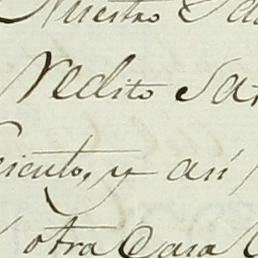 Nuestro Sa
Nedito Sa
ciento, y así
otra Casa